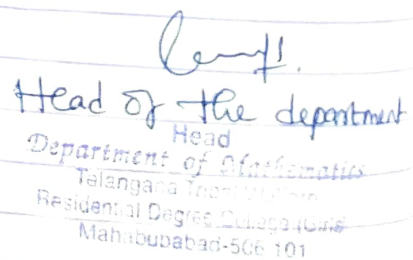 Head of the department
Head
Department of Mathematics
Telangana Tribal Welfare
Residential Degree College (Girls)
Mahabubabad-506 101